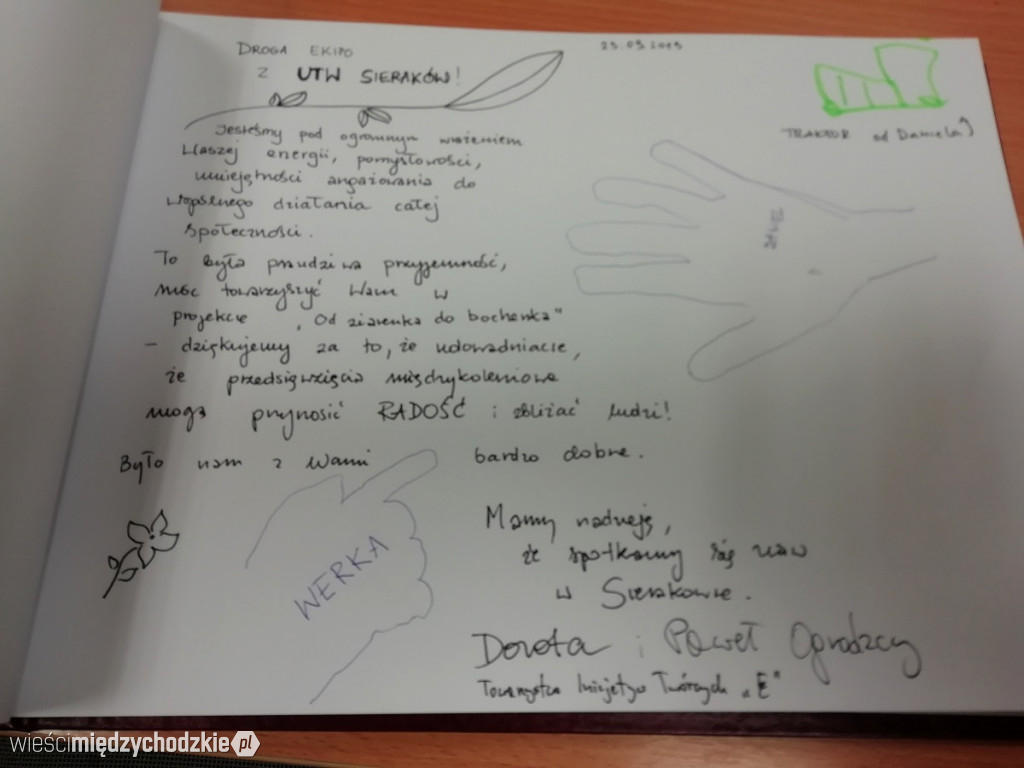 DROGA EKIPO
Z UTW SIERAKÓW!
23.09.2019
TRAKTOR od Daniela
Jesteśmy pod ogromnym wrażeniem
Waszej energii, pomysłowości,
umiejętności angażowania do
wspólnego działania całej
społeczności.
To była prawdziwa przyjemność,
móc towarzyszyć Wam w
projekcie „Od ziarenka do bochenka"
– dziękujemy za to, że udowadniacie,
że przedsięwzięcia międzypokoleniowe
mogą przynosić RADOŚĆ i zbliżać ludzi!
Było nam z Wami bardzo dobrze.
WERKA
Mamy nadzieję,
że spotkamy się znów
w Sierakowie.
Dorota i Paweł Ogrodzcy
Towarzystwo Inicjatyw Twórczych „Ę"
wieścimiędzychodzkie.pl